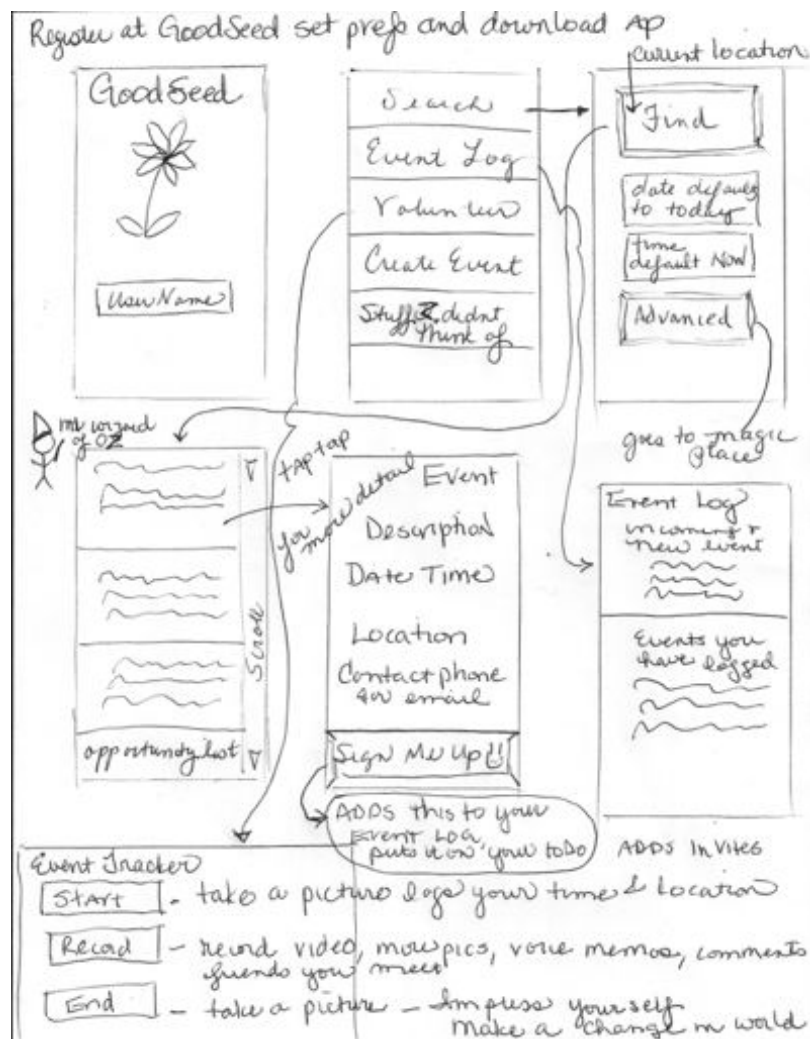 Register at GoodSeed set prefs and download Ap
current location
GoodSeed
UserName
Search
Event Log
Volunteer
Create Event
Stuff I didnt
think of
Find
date defaults
to today
time
default Now
Advanced
goes to magic
place
wizard
of OZ
tap tap
for more detail
Scroll
opportunity list
Event
Description
Date Time
Location
Contact phone
or email
Sign Me Up
ADDS this to your
Event Log,
puts it on your todo
Event Log
incoming +
new event
Events you
have logged
ADDS INVITES
Event Tracker
Start - take a picture logs your time & Location
Record - record video, more pics, voice memos, comments
friends you meet
End - take a picture - Impress yourself
make a change in world